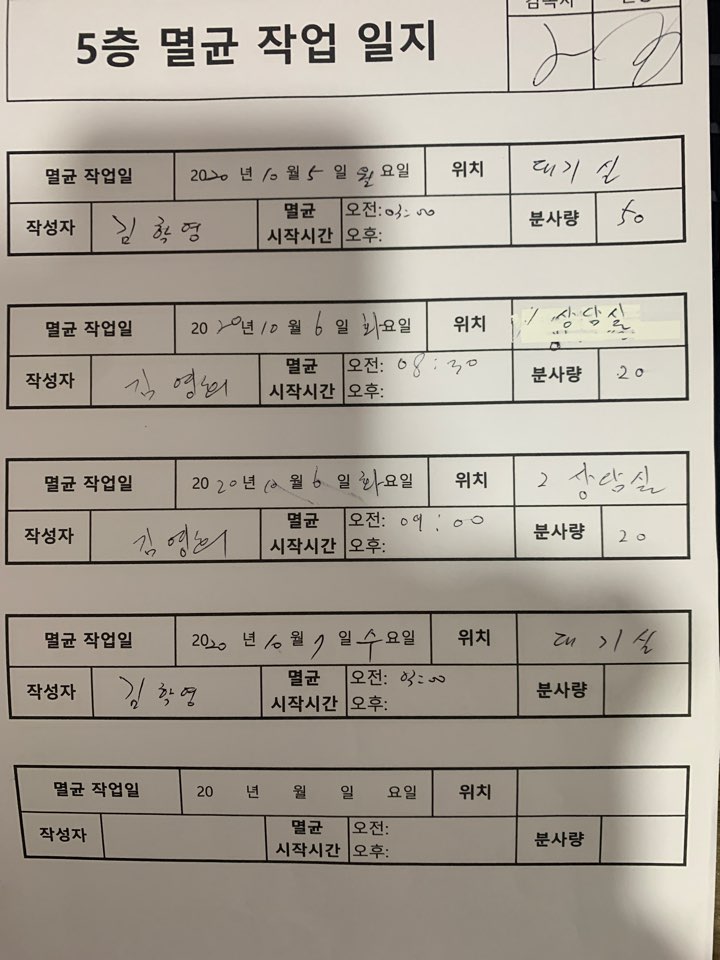 5층 멸균 작업 일지
멸균 작업일 2020 년 10 월 5 일 월 요일 위치 대기실
작성자 김학영 멸균 시작시간 오전: 03:00 오후: 분사량 50
멸균 작업일 2020 년 10 월 6 일 화 요일 위치 1 상담실
작성자 김영희 멸균 시작시간 오전: 08:30 오후: 분사량 20
멸균 작업일 2020 년 10 월 6 일 화 요일 위치 2 상담실
작성자 김영희 멸균 시작시간 오전: 09:00 오후: 분사량 20
멸균 작업일 2020 년 10 월 7 일 수 요일 위치 대기실
작성자 김학영 멸균 시작시간 오전: 03:00 오후: 분사량
멸균 작업일 20 년 월 일 요일 위치
작성자 멸균 시작시간 오전: 오후: 분사량